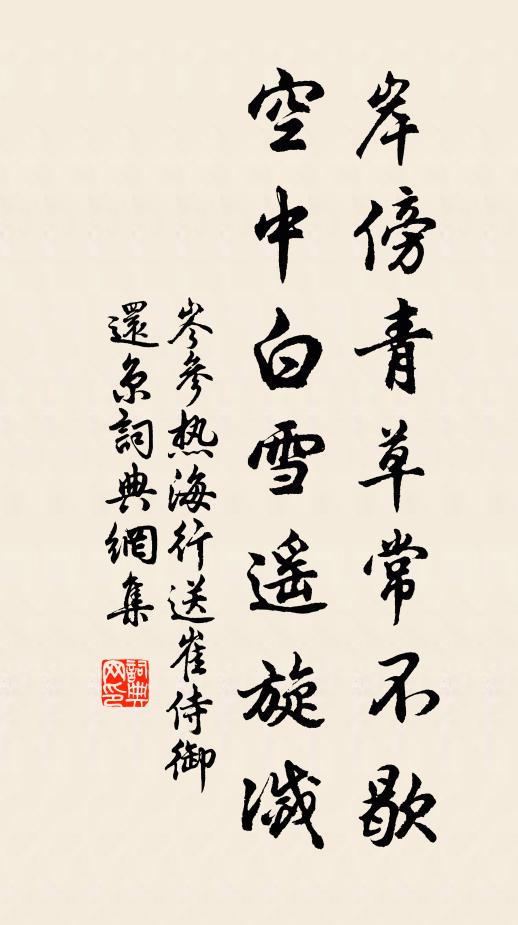 岸傍青草常不歇
空中白雪遥旋滅
岑參热海行送崔侍御
還京詞典網集
詞典
网印